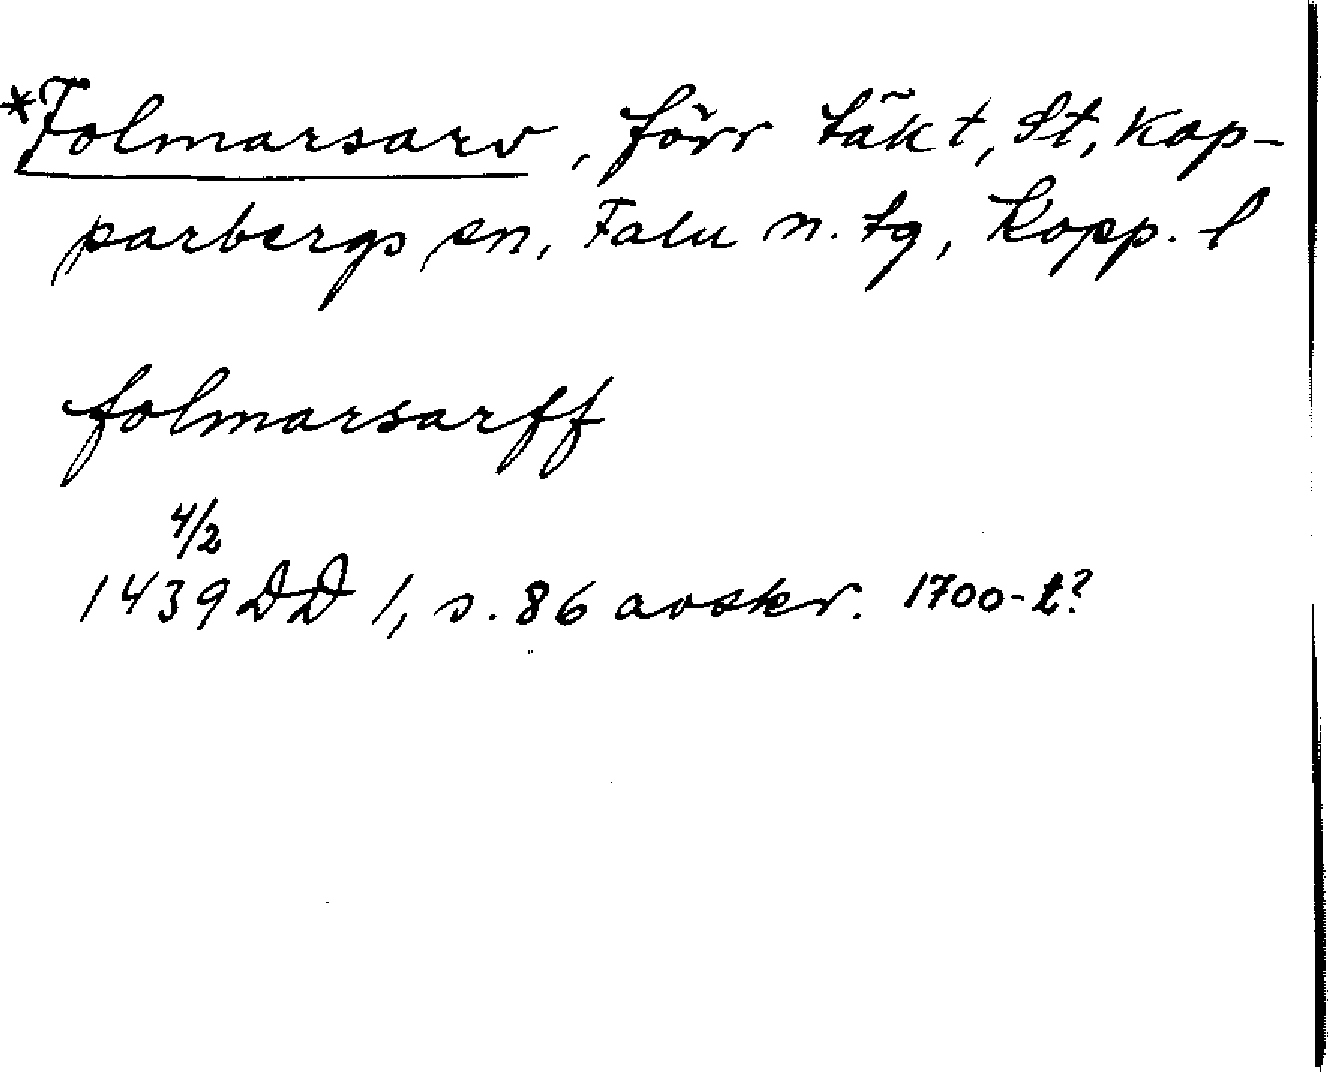 *Folmarsarv, förr täkt, St. Kop-
parbergs sn, Falu n. tg, Kopp. l
folmarsarff
4/2
1439 DD 1, s. 86 avskr. 1700-t?